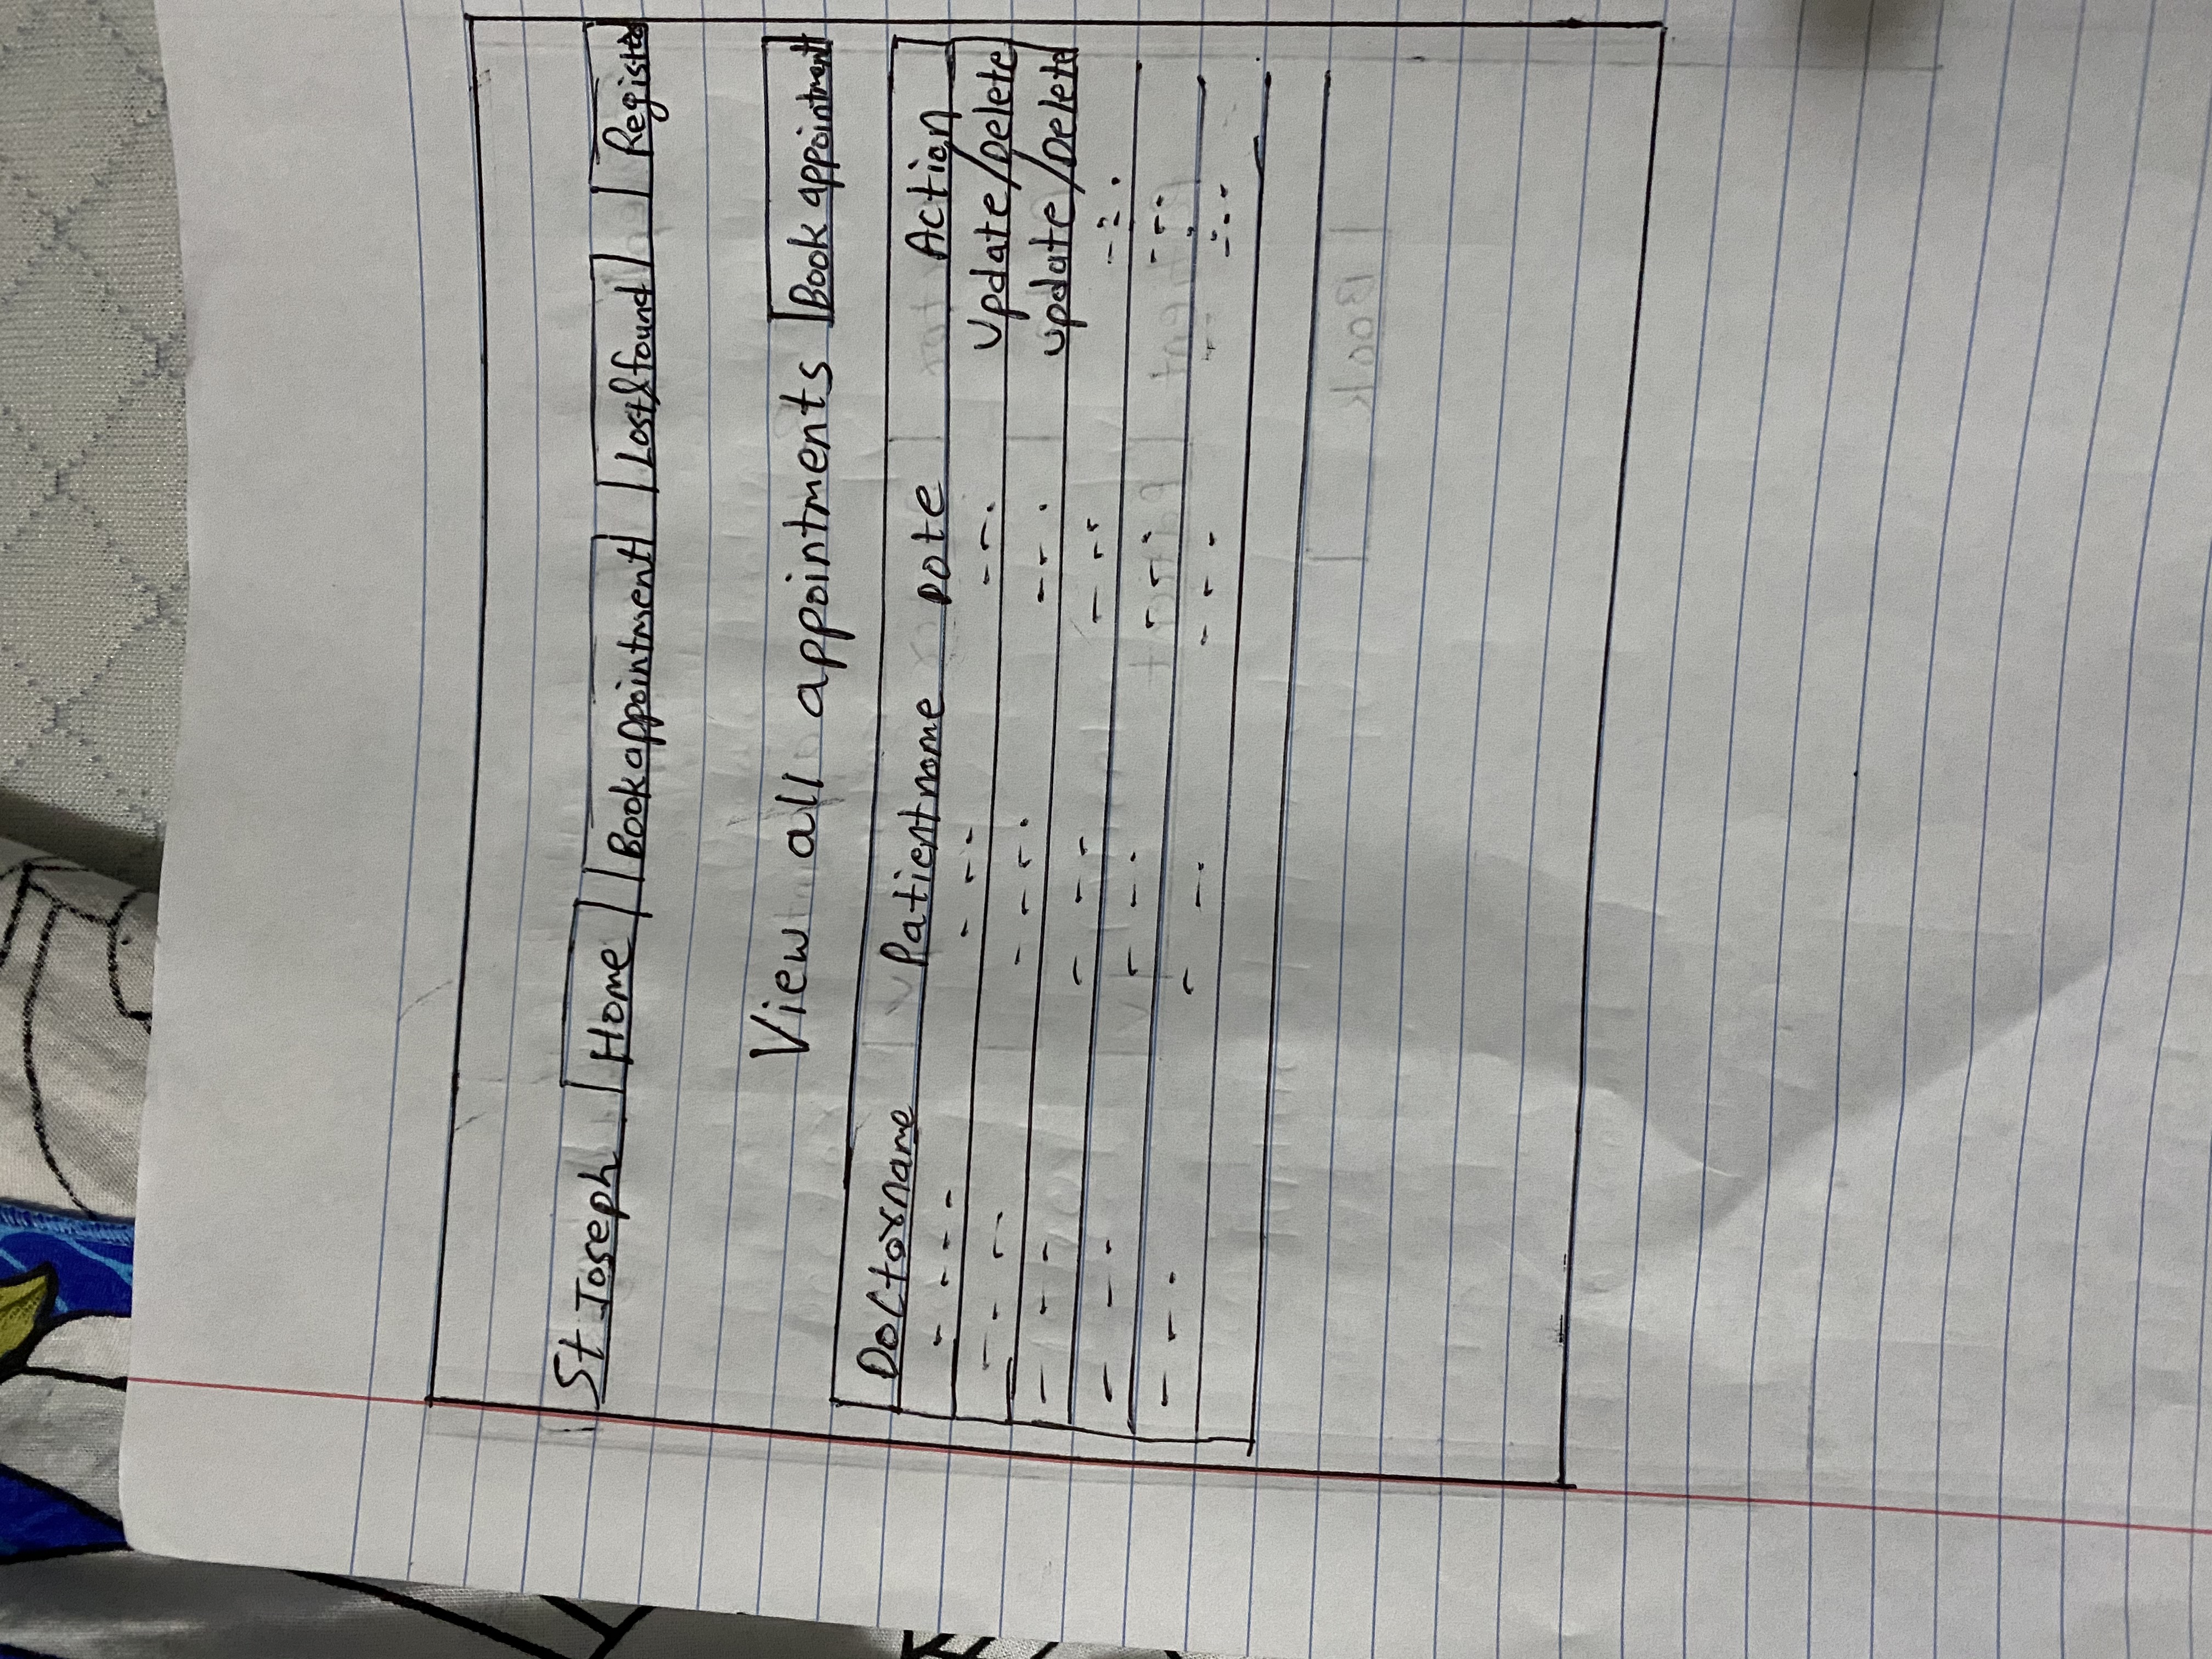 St Joseph Home Book appointment Lost&found Register
View all appointments Book appointment
Doctorname Patientname Date Action
Update/Delete
update/Delete